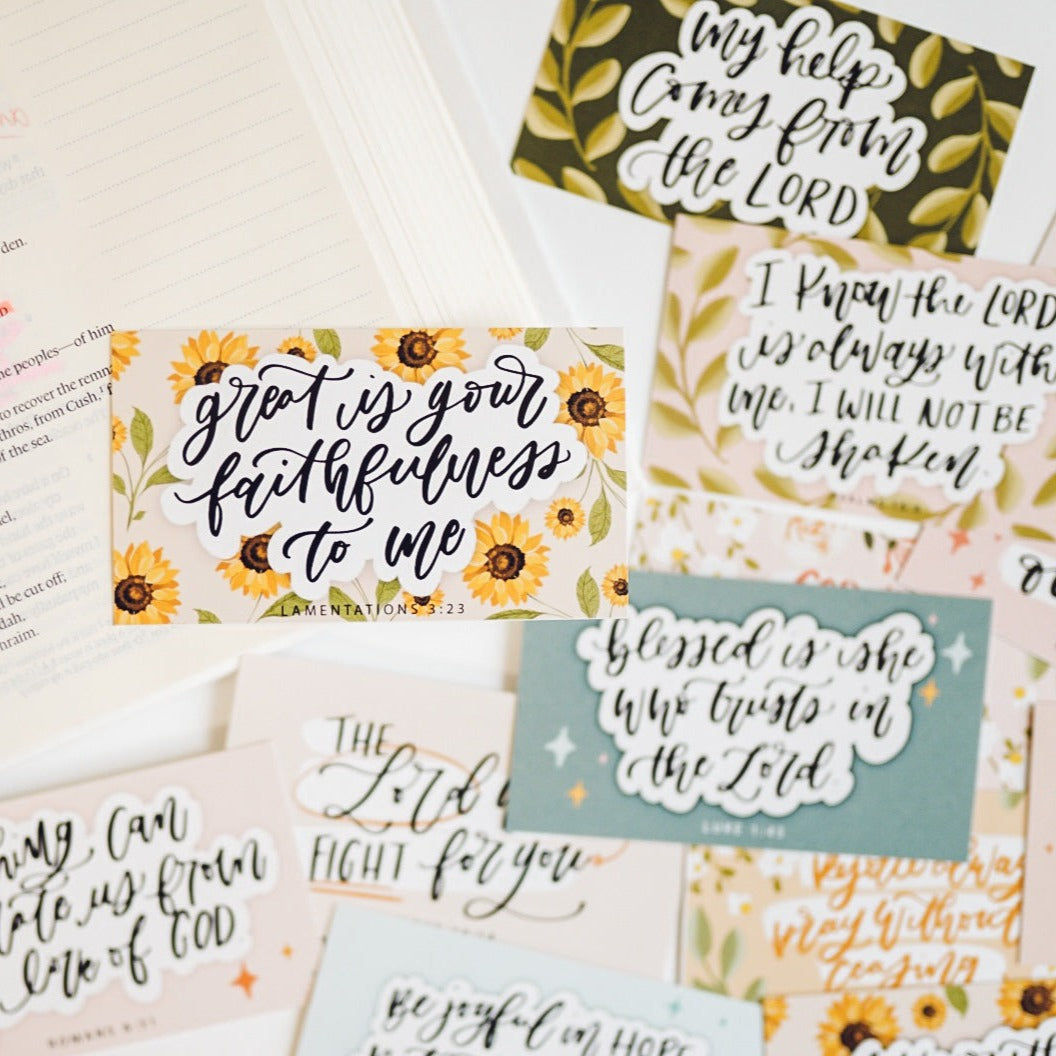 den.
he peoples—of him
to recover the remn
thros, from Cush,
f the sea.
l be cut off;
dah.
hraim.
great is your
faithfulness
to me
LAMENTATIONS 3:23
my help
Comes from
the LORD
I know the LORD
is always with
me. I WILL NOT BE
shaken.
blessed is she
who trusts in
the Lord
LUKE 1:45
THE
Lord
FIGHT for you
hing can
rate us from
love of GOD
ROMANS 8:31
Rejoice always
pray without
ceasing
Be joyful in HOPE